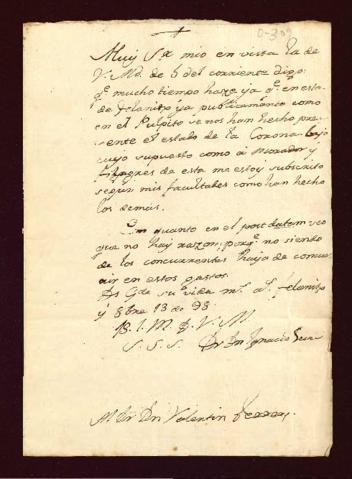 D-309
Muy Sr. mio en vista la de
V. Md. de 5 del corriente digo:
qe. mucho tiempo haze ya qe. en esta
de Felanitx ya publicamente como
en el Pulpito se nos han hecho pre-
sente el estado de la Corona bajo
cuyo supuesto como á morador y
de esta me estoy subscrito
segun mis facultades como han hecho
los demás.
En quanto en el postdatam veo
que no hay razon, porqe. no siendo
de los concurrentes haija de concur
air en estos gastos.
Ds. Gde. su vida ms. as. Felanitx
y 8bre 13 de 98.
B. L. M. D. V. M.
S. S. S. Dr. Dn. Ignacio
M. Dr. Dn. Valentin